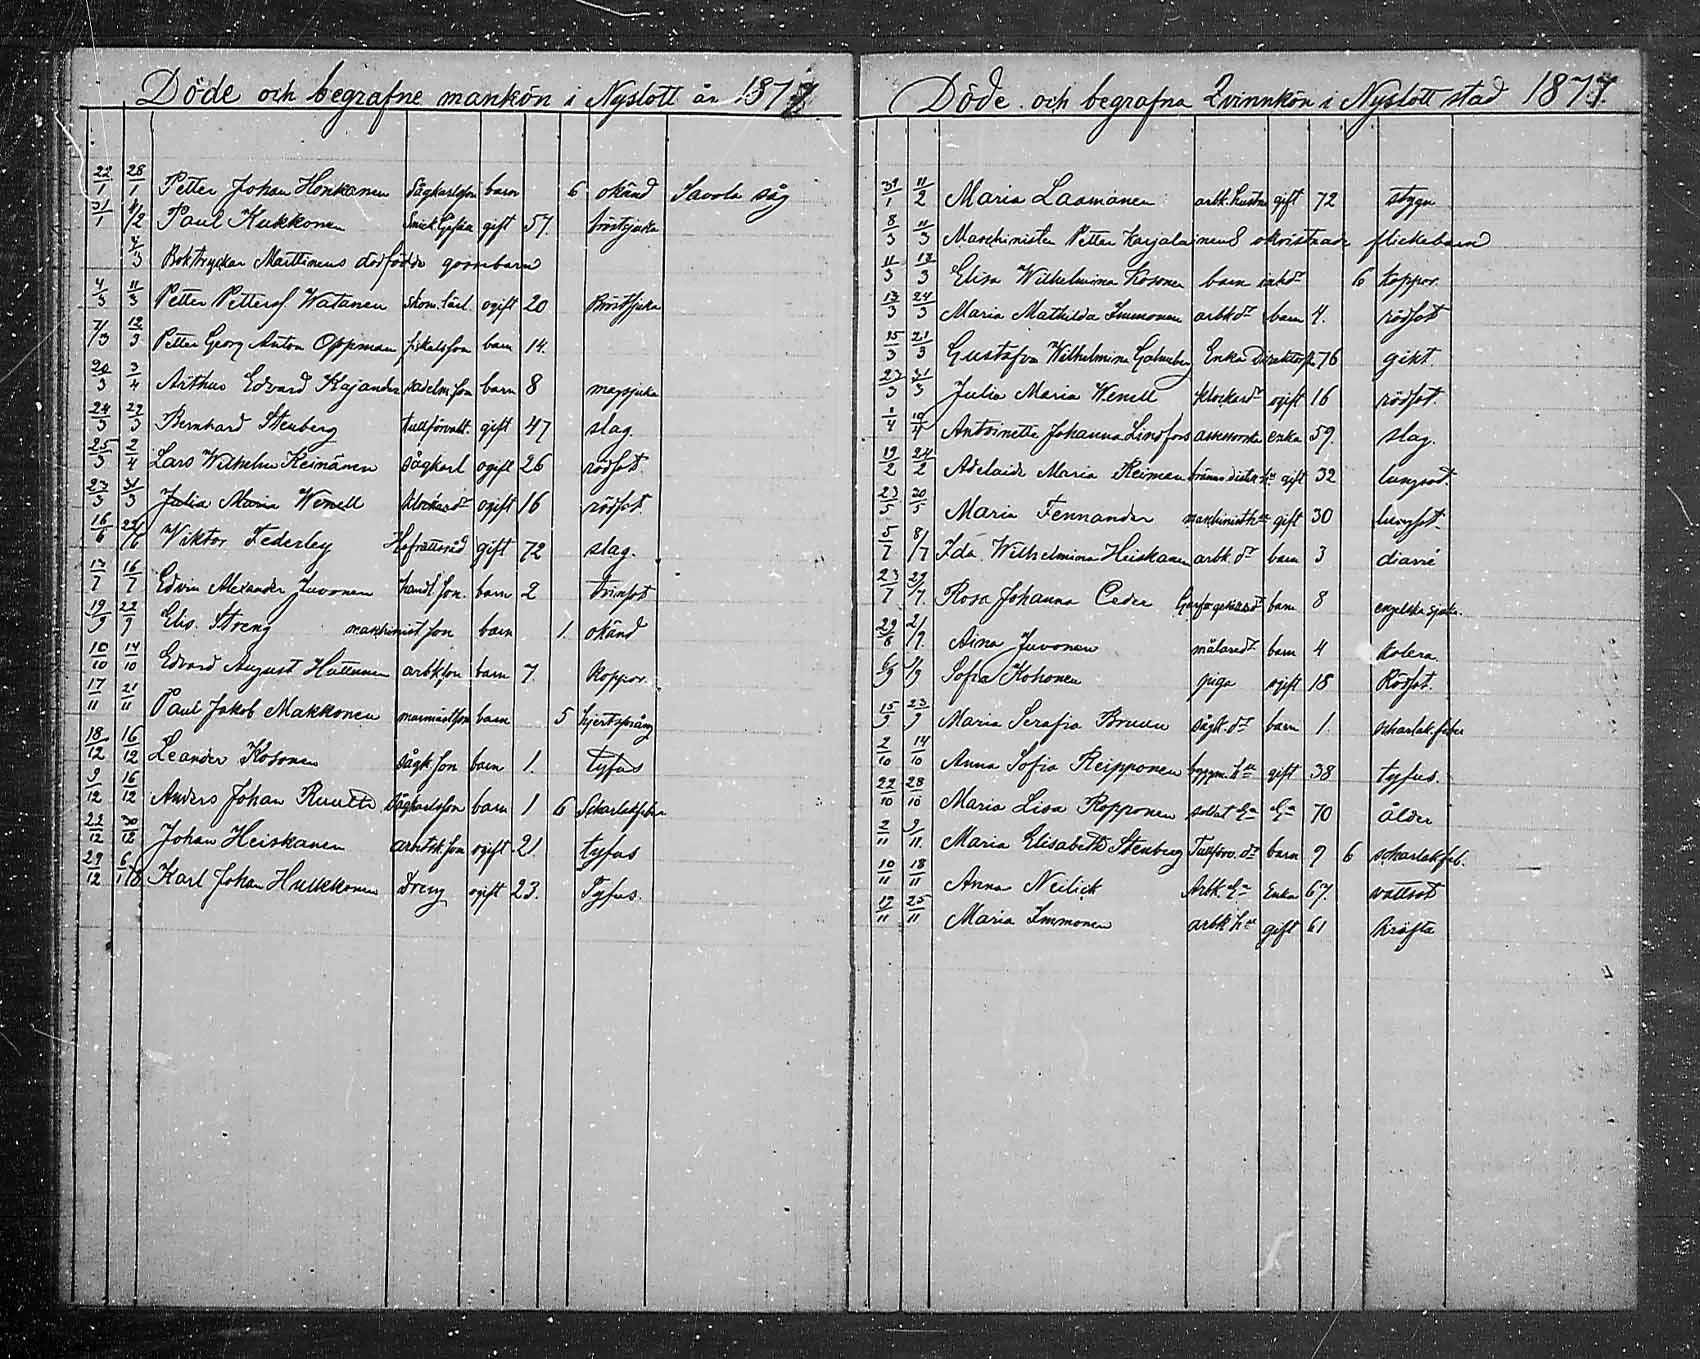 Döde och begrafne mankön i Nyslott år 1877
22/1 28/1 Petter Johan Honkanen Sågkarlsson barn 6 okänd Savola såg
31/1 4/2 Paul Kukkonen gift 57. bröstsjuka
4/3 Boktryckar Marttinens dödfödde gossebarn
4/3 11/3 Petter Petterss Watanen skom. lärl. ogift 20 Bröstsjuka
7/3 13/3 Petter Georg Anton Oppman fiskalsson barn 14.
20/3 3/4 Arthur Edvard Kajander sadelm. son barn 8 magsjuka
24/3 29/3 Bernhard Stenberg tullförvalt. gift 47 slag.
25/3 2/4 Lars Wilhelm Keinänen sågkarl ogift 26 rödsot.
23/3 31/3 Julia Maria Wenell klockard:r ogift 16 rödsot.
16/6 22/6 Wiktor Federley Hofrättsråd gift 72 slag.
13/7 16/7 Edvin Alexander Juvonen handl. son. barn 2 trinsot
19/9 22/9 Elis. Streng maschinist son barn 1. okänd
10/10 14/10 Edvard August Hattunen arbk. son barn 7. koppor
17/11 21/11 Paul Jakob Makkonen barn 5 hjertsprång
18/12 16/12 Leander Kosonen sågk. son barn 1. tyfus
9/12 16/12 Anders Johan sågkarlsson barn 1 6 Scharlakfeber
22/12 30/12 Johan Heiskanen arbetsk. son ogift 21. tyfus
29/12 6/1 78 Karl Johan Hulkkonen dreng ogift 23. Tyfus.
Döde och begrafna Qvinnkön i Nyslott stad 1877.
31/1 11/2 Maria Laamanen arbk. hustru gift 72 stygn
8/3 11/3 Maschinisten Petter Karjalainens okristnade flickebarn
11/3 18/3 Elisa Wilhelmina Kosonen barn 6 koppor.
13/3 24/3 Maria Mathilda Immonen arbkd:r barn 4. rödsot
15/3 21/3 Gustafva Wilhelmina Enka 76 gikt.
23/3 31/3 Julia Maria Wenell klockard:r ogift 16 rödsot.
1/4 10/4 Antoinette Johanna Lindfors assessorska enka 59. slag.
19/2 24/2 Adelaide Maria Reiman gift 32 lungsot.
23/5 30/5 Maria Fennander maschinisth:u gift 30 lungsot.
5/7 8/7 Ida Wilhelmina Heiskanen arbk. d:r barn 3 diarré
23/7 29/7 Rosa Johanna Ceder barn 8 engelska sjuka.
29/8 2/9 Aina Juvonen målared:r barn 4 kolera
6/9 9/9 Sofia Kohonen piga ogift 18 Rödsot.
15/9 23/9 Maria Serafia Bruun sågk. d:r barn 1. scharlak. feber
2/10 14/10 Anna Sofia Reipponen byggm. h:u gift 38 tyfus.
22/10 28/10 Maria Lisa Ropponen soldat E:a E:a 70 ålder
2/11 9/11 Maria Elisabeth Stenberg Tullförv. d:r barn 9 6 scharlakfeb.
10/11 18/11 Anna Neilick Arbk. E:a Enka 67. vattsot
19/11 25/11 Maria Immonen arbk h:u gift 61 kräfta